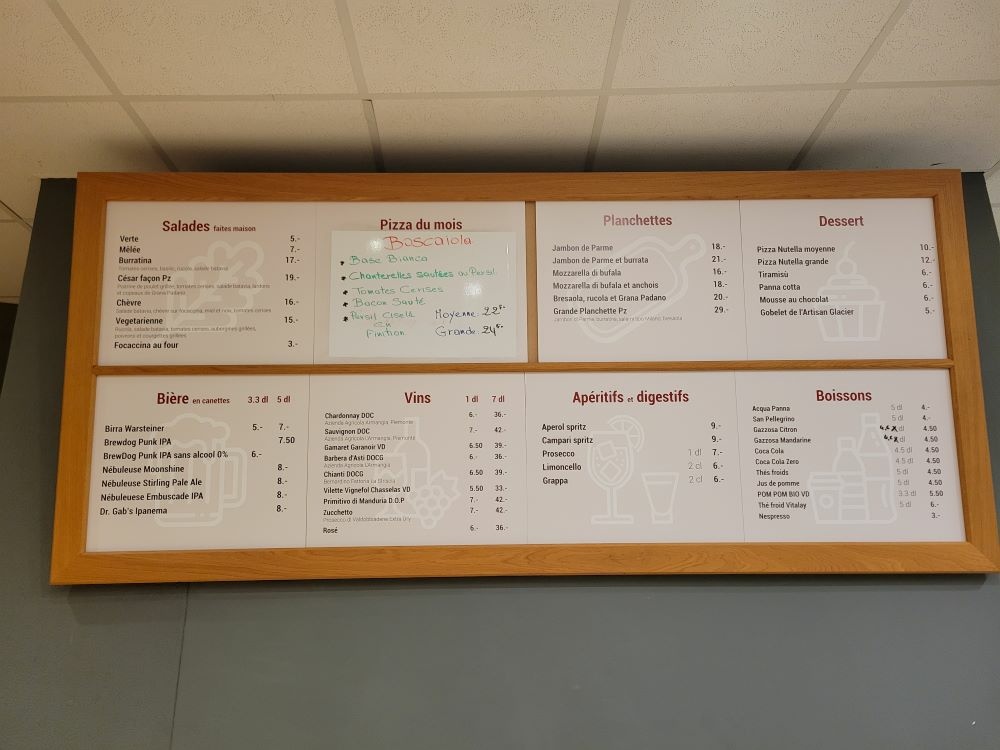 Salades faites maison
Verte 5.-
Mêlée 7.-
Burratina 17.-
Tomates cerises, basilic, rucola, salade batavia
César façon Pz 19.-
Poitrine de poulet grillée, tomates cerises, salade batavia, lardons
et copeaux de Grana Padano
Chèvre 16.-
Salade batavia, chèvre sur focaccia, miel et noix, tomates cerises
Vegetarienne 15.-
Rucola, salade batavia, tomates cerises, aubergines grillées,
poivrons et courgettes grillées
Focaccina au four 3.-
Pizza du mois
Boscaiola
Base Bianca
Chanterelles sautées au Persil
Tomates Cerises
Bacon Sauté
Persil Ciselé
en
Finition
Moyenne: 22.-
Grande: 24.-
Planchettes
Jambon de Parme 18.-
Jambon de Parme et burrata 21.-
Mozzarella di bufala 16.-
Mozzarella di bufala et anchois 18.-
Bresaola, rucola et Grana Padano 20.-
Grande Planchette Pz 29.-
Dessert
Pizza Nutella moyenne 10.-
Pizza Nutella grande 12.-
Tiramisù 6.-
Panna cotta 6.-
Mousse au chocolat 6.-
Gobelet de l'Artisan Glacier 5.-
Bière en canettes 3.3 dl 5 dl
Birra Warsteiner 5.- 7.-
Brewdog Punk IPA 7.50
BrewDog Punk IPA sans alcool 0% 6.-
Nébuleuse Moonshine 8.-
Nébuleuse Stirling Pale Ale 8.-
Nébuleuese Embuscade IPA 8.-
Dr. Gab's Ipanema 8.-
Vins 1 dl 7 dl
Chardonnay DOC 6.- 36.-
Azienda Agricola L'Armangia, Piemonte
Sauvignon DOC 7.- 42.-
Azienda Agricola L'Armangia, Piemonte
Gamaret Garanoir VD 6.50 39.-
Barbera d'Asti DOCG 6.- 36.-
Azienda Agricola L'Armangia
Chianti DOCG 6.50 39.-
Bernardino Fattoria La Striscia
Vilette Vignefol Chasselas VD 5.50 33.-
Primitivo di Manduria D.O.P 7.- 42.-
Zucchetto 7.- 42.-
Prosecco di Valdobbiadene Extra Dry
Rosé 6.- 36.-
Apéritifs et digestifs
Aperol spritz 9.-
Campari spritz 9.-
Prosecco 1 dl 7.-
Limoncello 2 cl 6.-
Grappa 2 cl 6.-
Boissons
Acqua Panna 5 dl 4.-
San Pellegrino 5 dl 4.-
Gazzosa Citron dl 4.50
Gazzosa Mandarine dl 4.50
Coca Cola 4.5 dl 4.50
Coca Cola Zero 4.5 dl 4.50
Thés froids 5 dl 4.50
Jus de pomme 5 dl 4.50
POM POM BIO VD 3.3 dl 5.50
Thé froid Vitalay 5 dl 6.-
Nespresso 3.-